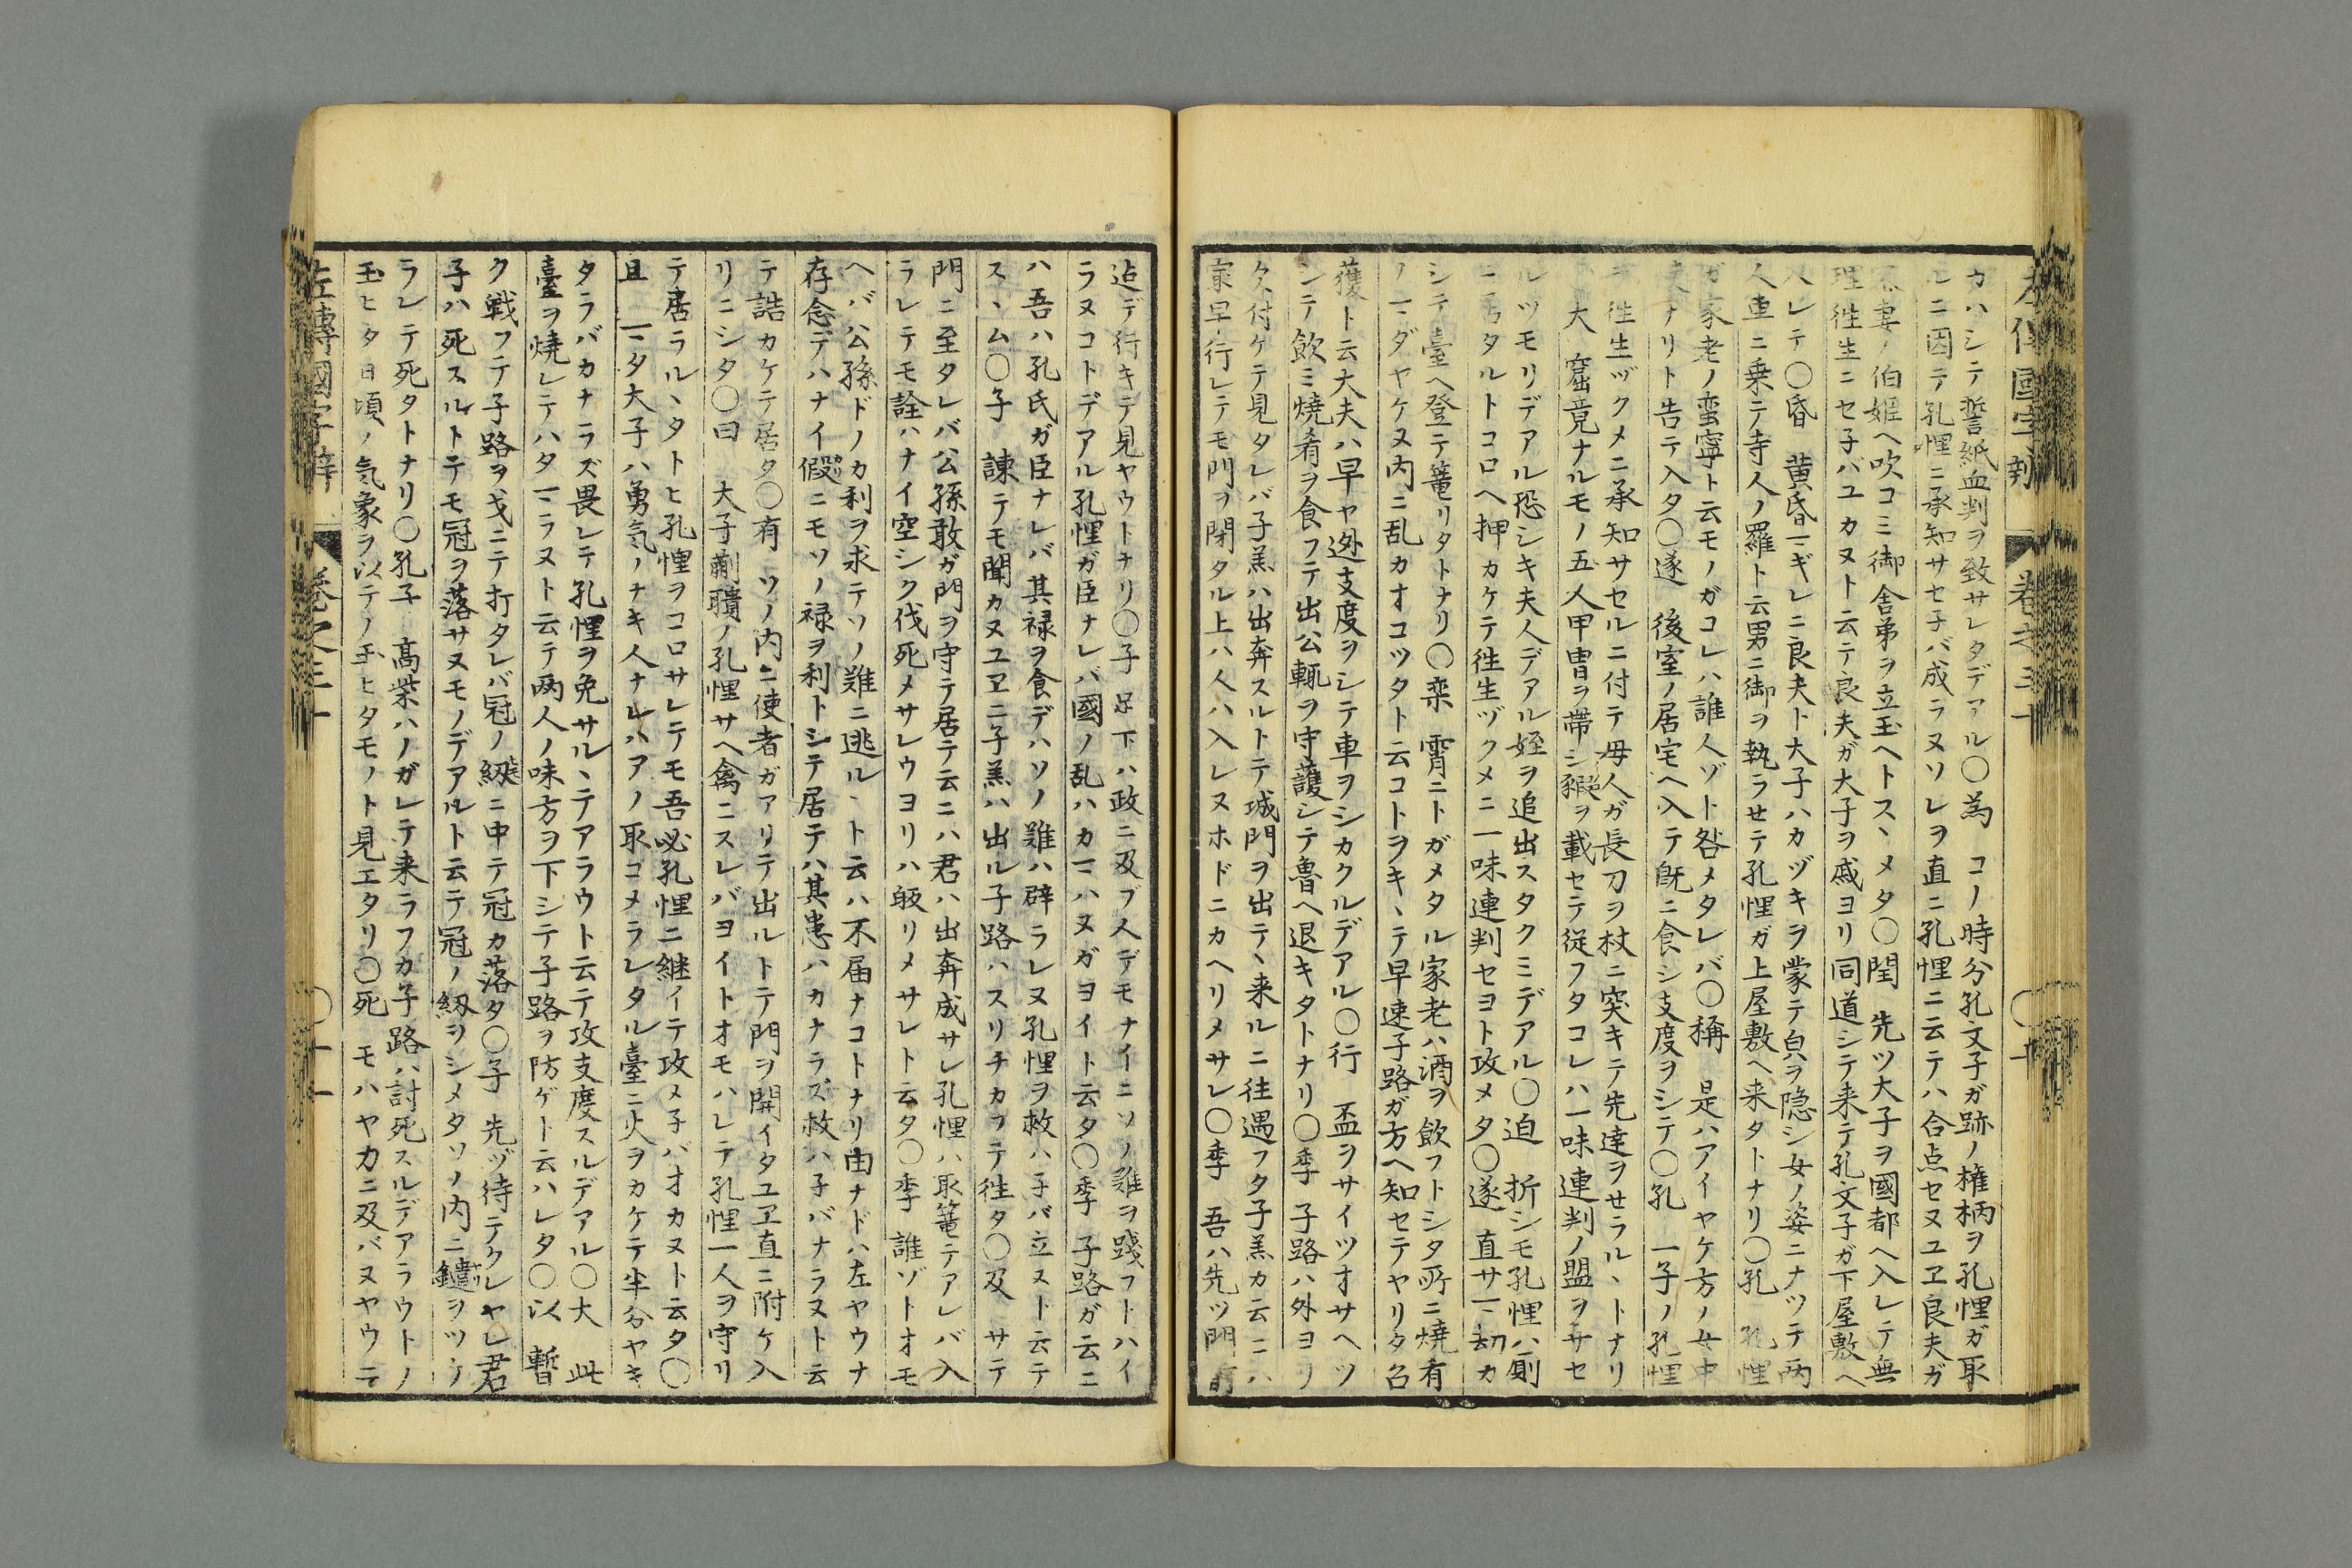 カハシテ誓紙血判ヲ致サレタデアル〇為 コノ時分孔文子ガ跡ノ権柄ヲ孔悝ガ取
ルニ因テ孔悝ニ承知サセ子バ成ラヌソレヲ直ニ孔悝ニ云テハ合点セヌユヱ良夫ガ
妻ノ伯姫ヘ吹コミ御舎弟ヲ立玉ヘトスヽメタ〇閏 先ツ大子ヲ國都ヘ入レテ無
理往生ニセ子バユカヌト云テ良夫ガ大子ヲ戚ヨリ同道シテ来テ孔文子ガ下屋敷ヘ
入レテ〇昏 黄昏マギレニ良夫ト大子ハカヅキヲ蒙テ㒵ヲ隠シ女ノ姿ニナツテ両
人車ニ乗テ寺人ノ羅ト云男ニ御ヲ執ラせテ孔悝ガ上屋敷ヘ来タトナリ〇孔 孔悝
ガ家老ノ蛮寧ト云モノガコレハ誰人ゾト咎メタレバ〇稱 是ハアイヤケ方ノ女中
ナリト告テ入タ〇遂 後室ノ居宅ヘ入テ既ニ食シ支度ヲシテ〇孔 一子ノ孔悝
ニ往生ヅクメニ承知サセルニ付テ母人ガ長刀ヲ杖ニ突キテ先達ヲせラルヽトナリ
大 窟竟ナルモノ五人甲冑ヲ帯シ豭ヲ載セテ従フタコレハ一味連判ノ盟ヲサセ
ルツモリデアル恐シキ夫人デアル姪ヲ追出スタクミデアル〇迫 折シモ孔悝ハ厠
ニ居タルトコロヘ押カケテ往生ヅクメニ一味連判セヨト攻メタ〇遂 直サマ劫カ
シテ臺ヘ登テ篭リタトナリ〇栾 霄ニトガメタル家老ハ酒ヲ飲フトシタ所ニ焼肴
ノマダヤケヌ内ニ乱カオコツタト云コトヲキヽテ早速子路ガ方ヘ知セテヤリタ召
獲ト云大夫ハ早ヤ迯支度ヲシテ車ヲシカクルデアル〇行 盃ヲサイツオサヘツ
シテ飲ミ焼肴ヲ食フテ出公輒ヲ守護シテ魯ヘ退キタトナリ〇季 子路ハ外ヨリ
欠付ケテ見タレバ子羔ハ出奔スルトテ城門ヲ出テヽ来ルニ往遇フタ子羔カ云ニハ
最早行レテモ門ヲ閉タル上ハ人ハ入レヌホドニカヘリメサレ〇季 吾ハ先ツ門前
左傳國字辯 巻之三十 〇十
迠デ行キテ見ヤウトナリ〇子 足下ハ政ニ及ブ人デモナイニソノ難ヲ踐フトハイ
ラヌコトデアル孔悝ガ臣ナレバ國ノ乱ハカマハヌガヨイト云タ〇季 子路ガ云ニ
ハ吾ハ孔氏ガ臣ナレバ其禄ヲ食デハソノ難ハ辟ラレヌ孔悝ヲ救ハ子バ立ヌト云テ
スヽム〇子 諫テモ聞カヌユヱニ子羔ハ出ル子路ハスリチカフテ往タ〇及 サテ
門ニ至タレバ公孫敢ガ門ヲ守テ居テ云ニハ君ハ出奔成サレ孔悝ハ取篭テアレバ入
ラレテモ詮ハナイ空シク伐死メサレウヨリハ皈リメサレト云タ〇季 誰ゾトオモ
ヘバ公孫ドノカ利ヲ求テソノ難ニ逃ルヽト云ハ不届ナコトナリ由ナドハ左ヤウナ
存念デハナイ假ニモソノ禄ヲ利トシテ居テハ其患ハカナラズ救ハ子バナラヌト云
テ誥カケテ居タ〇有 ソノ内ニ使者ガアリテ出ルトテ門ヲ開イタユヱ直ニ附ケ入
リニシタ〇曰 大子蒯聵ノ孔悝サヘ禽ニスレバヨイトオモハレテ孔悝一人ヲ守リ
テ居ラルヽタトヒ孔悝ヲコロサレテモ吾必孔悝ニ継イテ攻メ子バオカヌト云タ〇
且 マタ大子ハ勇気ノナキ人ナレハアノ取コメラレタル臺ニ火ヲカケテ半分ヤキ
タラバカナラズ畏レテ孔悝ヲ免サルヽテアラウト云テ攻支度スルデアル〇大 此
臺ヲ焼レテハタマラヌト云テ両人ノ味方ヲ下シテ子路ヲ防ゲト云ハレタ〇以 暫
ク戦フテ子路ヲ戈ニテ打タレバ冠ノ綴ニ中テ冠カ落タ〇子 先ヅ待テクレヤレ君
子ハ死スルトテモ冠ヲ落サヌモノデアルト云テ冠ノ紉ヲシメタソノ内ニ鑓ヲツケ
ラレテ死タトナリ〇孔子 高柴ハノガレテ来ラフカ子路ハ討死スルデアラウトノ
玉ヒタ日頃ノ気象ヲ以テノ玉ヒタモノト見エタリ〇死 モハヤカニ及バヌヤウニ
左傳國字辯 巻之三十 〇十一